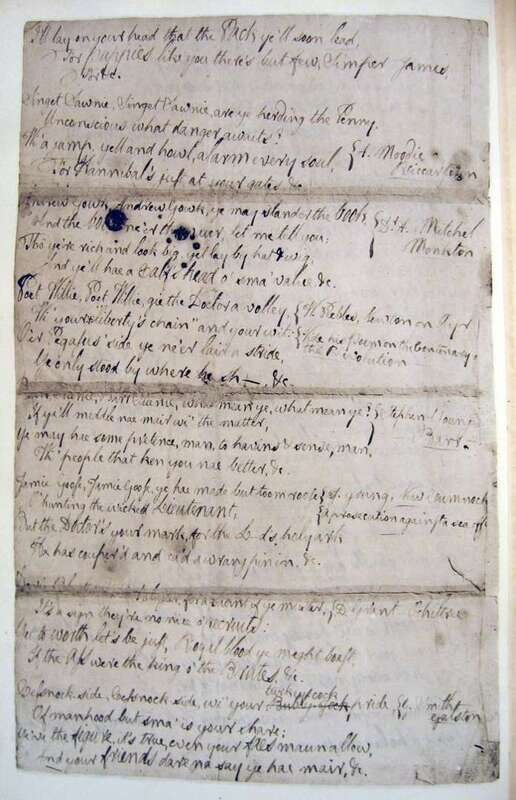 I'll lay on your head that the Pack ye'll soon lead,
For puppies like you there's but few, Simper James
&c.
Singet Sawnie, Singet Sawnie, are ye herding the Penny,
Unconscious what danger awaits?
Wi' a jump, yell and howl, alarm every soul, { A. Moodie
For Hannibal's just at your gates, &c. Riccartoun
Andrew Gowk, Andrew Gowk, ye may slander the book, { Dr A. Mitchel
And the book ne'er the waur, let me tell you; Monkton
Tho' ye're rich and look big, yet lay by hat & wig,
And ye'll hae a calf's head o' sma' value &c.
Poet Willie, Poet Willie, gie the Doctor a volley, { W. Peebles, Newton on Ayr
Wi' your liberty's chain and your wit: { Vide his poem on the Centenary of
O'er Pegasus' side ye ne'er laid a stride, the Revolution
Ye only stood by where he sh—, &c.
Barr Stenie, Barr Stenie, what mean ye, what mean ye? { Stephen Young
If ye'll meddle nae mair wi' the matter, Barr.
Ye may hae some pretence, man, to havins & sense, man,
Wi' people that ken you nae better, &c.
Jamie Goose, Jamie Goose, ye hae made but toom roose { J. Young, New Cumnock
O' hunting the wicked Lieutenant, { A prosecution against a sea
But the Doctor's your mark, for the L—d's holy ark
He has couper'd and ca'd a wrang pin in, &c.
for a saunt if ye muster, { D. Grant Ochiltree
It's a sign they're no nice o' recruits:
Yet to worth let's be just, Royal blood ye might boast,
If the Ass were the king o' the Brutes, &c.
Cessnock side, Cessnock side, wi' your turkeycock pride { G. Smith
Of manhood but sma' is your share; Galston
Ye've the figure, it's true, even your foes maun allow,
And your friends dare na say ye hae mair, &c.